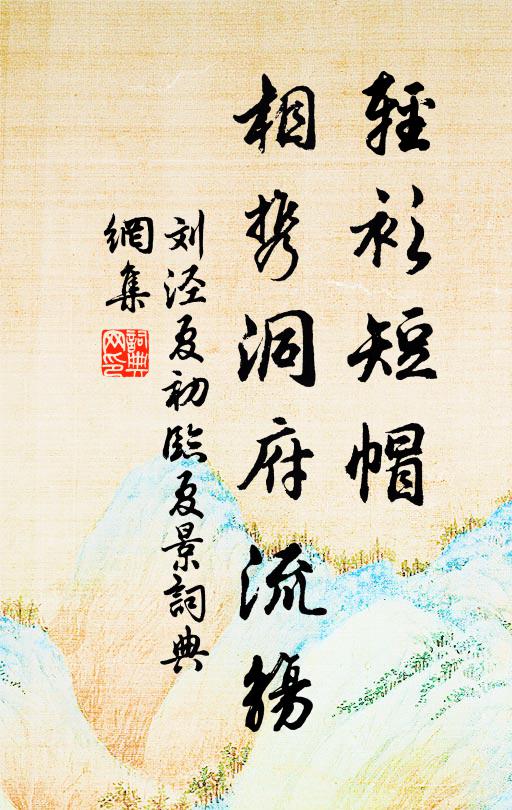 輕衫短帽
相携洞府流觴
刘涇夏初臨夏景詞典
網集
詞典
网印